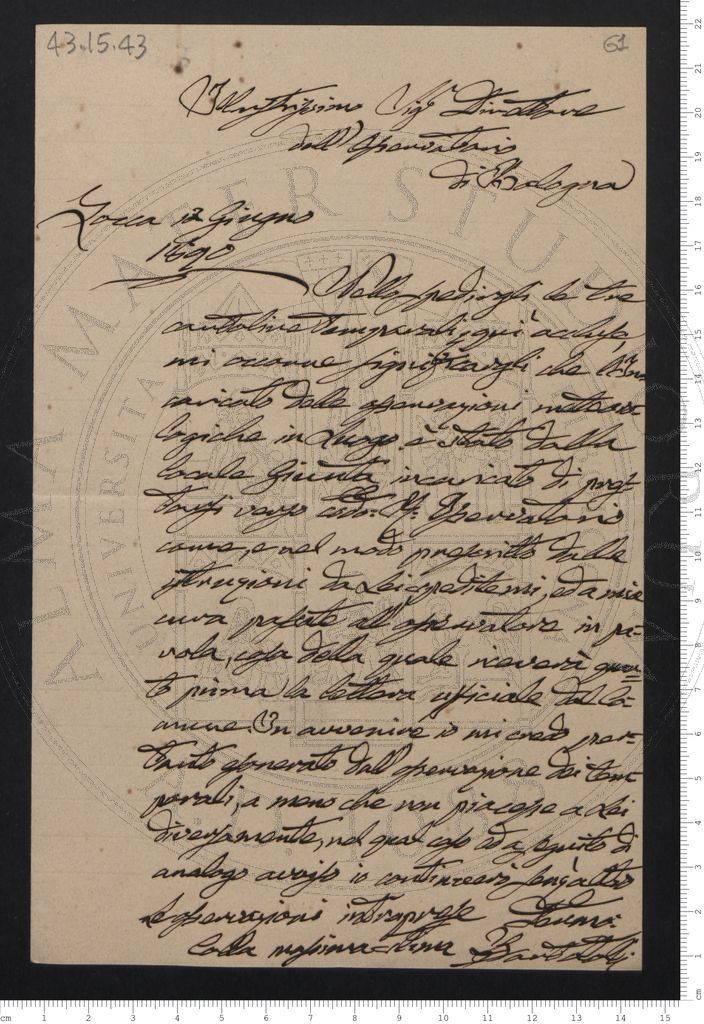 43.15.43
61
Illustrissimo Sigr Direttore
dell'Osservatorio
di Bologna
Zocca 12 Giugno
1890
Nello spedirgli le tre
cartoline temporali, qui accluse,
mi occorre significargli che l'in
caricato delle osservazioni meteoro
logiche in Luogo è stato dalla
locale Giunta incaricato di pres-
tarsi verso R. Osservatorio
come, e nel modo prescritto dalle
istruzioni da Lei speditemi, ed a mia
cura passate all'osservatore in pa-
rola, cosa della quale riceverà quan-
to prima la lettera ufficiale dal Co-
mune. In avvenire io mi credo per-
tanto esonerato dall'osservazione dei tem-
porali, a meno che non piacesse a Lei
diversamente, nel qual caso ed a seguito di
analogo avviso io continuerò senz'altro
le osservazioni intraprese
Colla massima stima Bartolotti
ALMA MATER STUDIORUM
UNIVERSITA